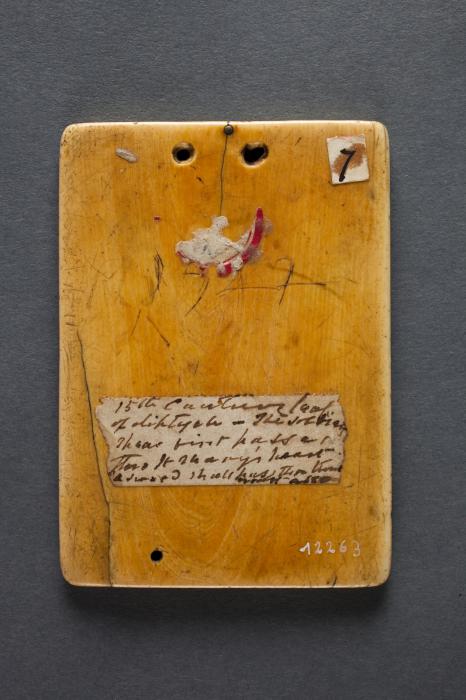 7
15th Century leaf
of diktych - The
There first passes
thro St Mary's heart
a sword shall pass thro
12263